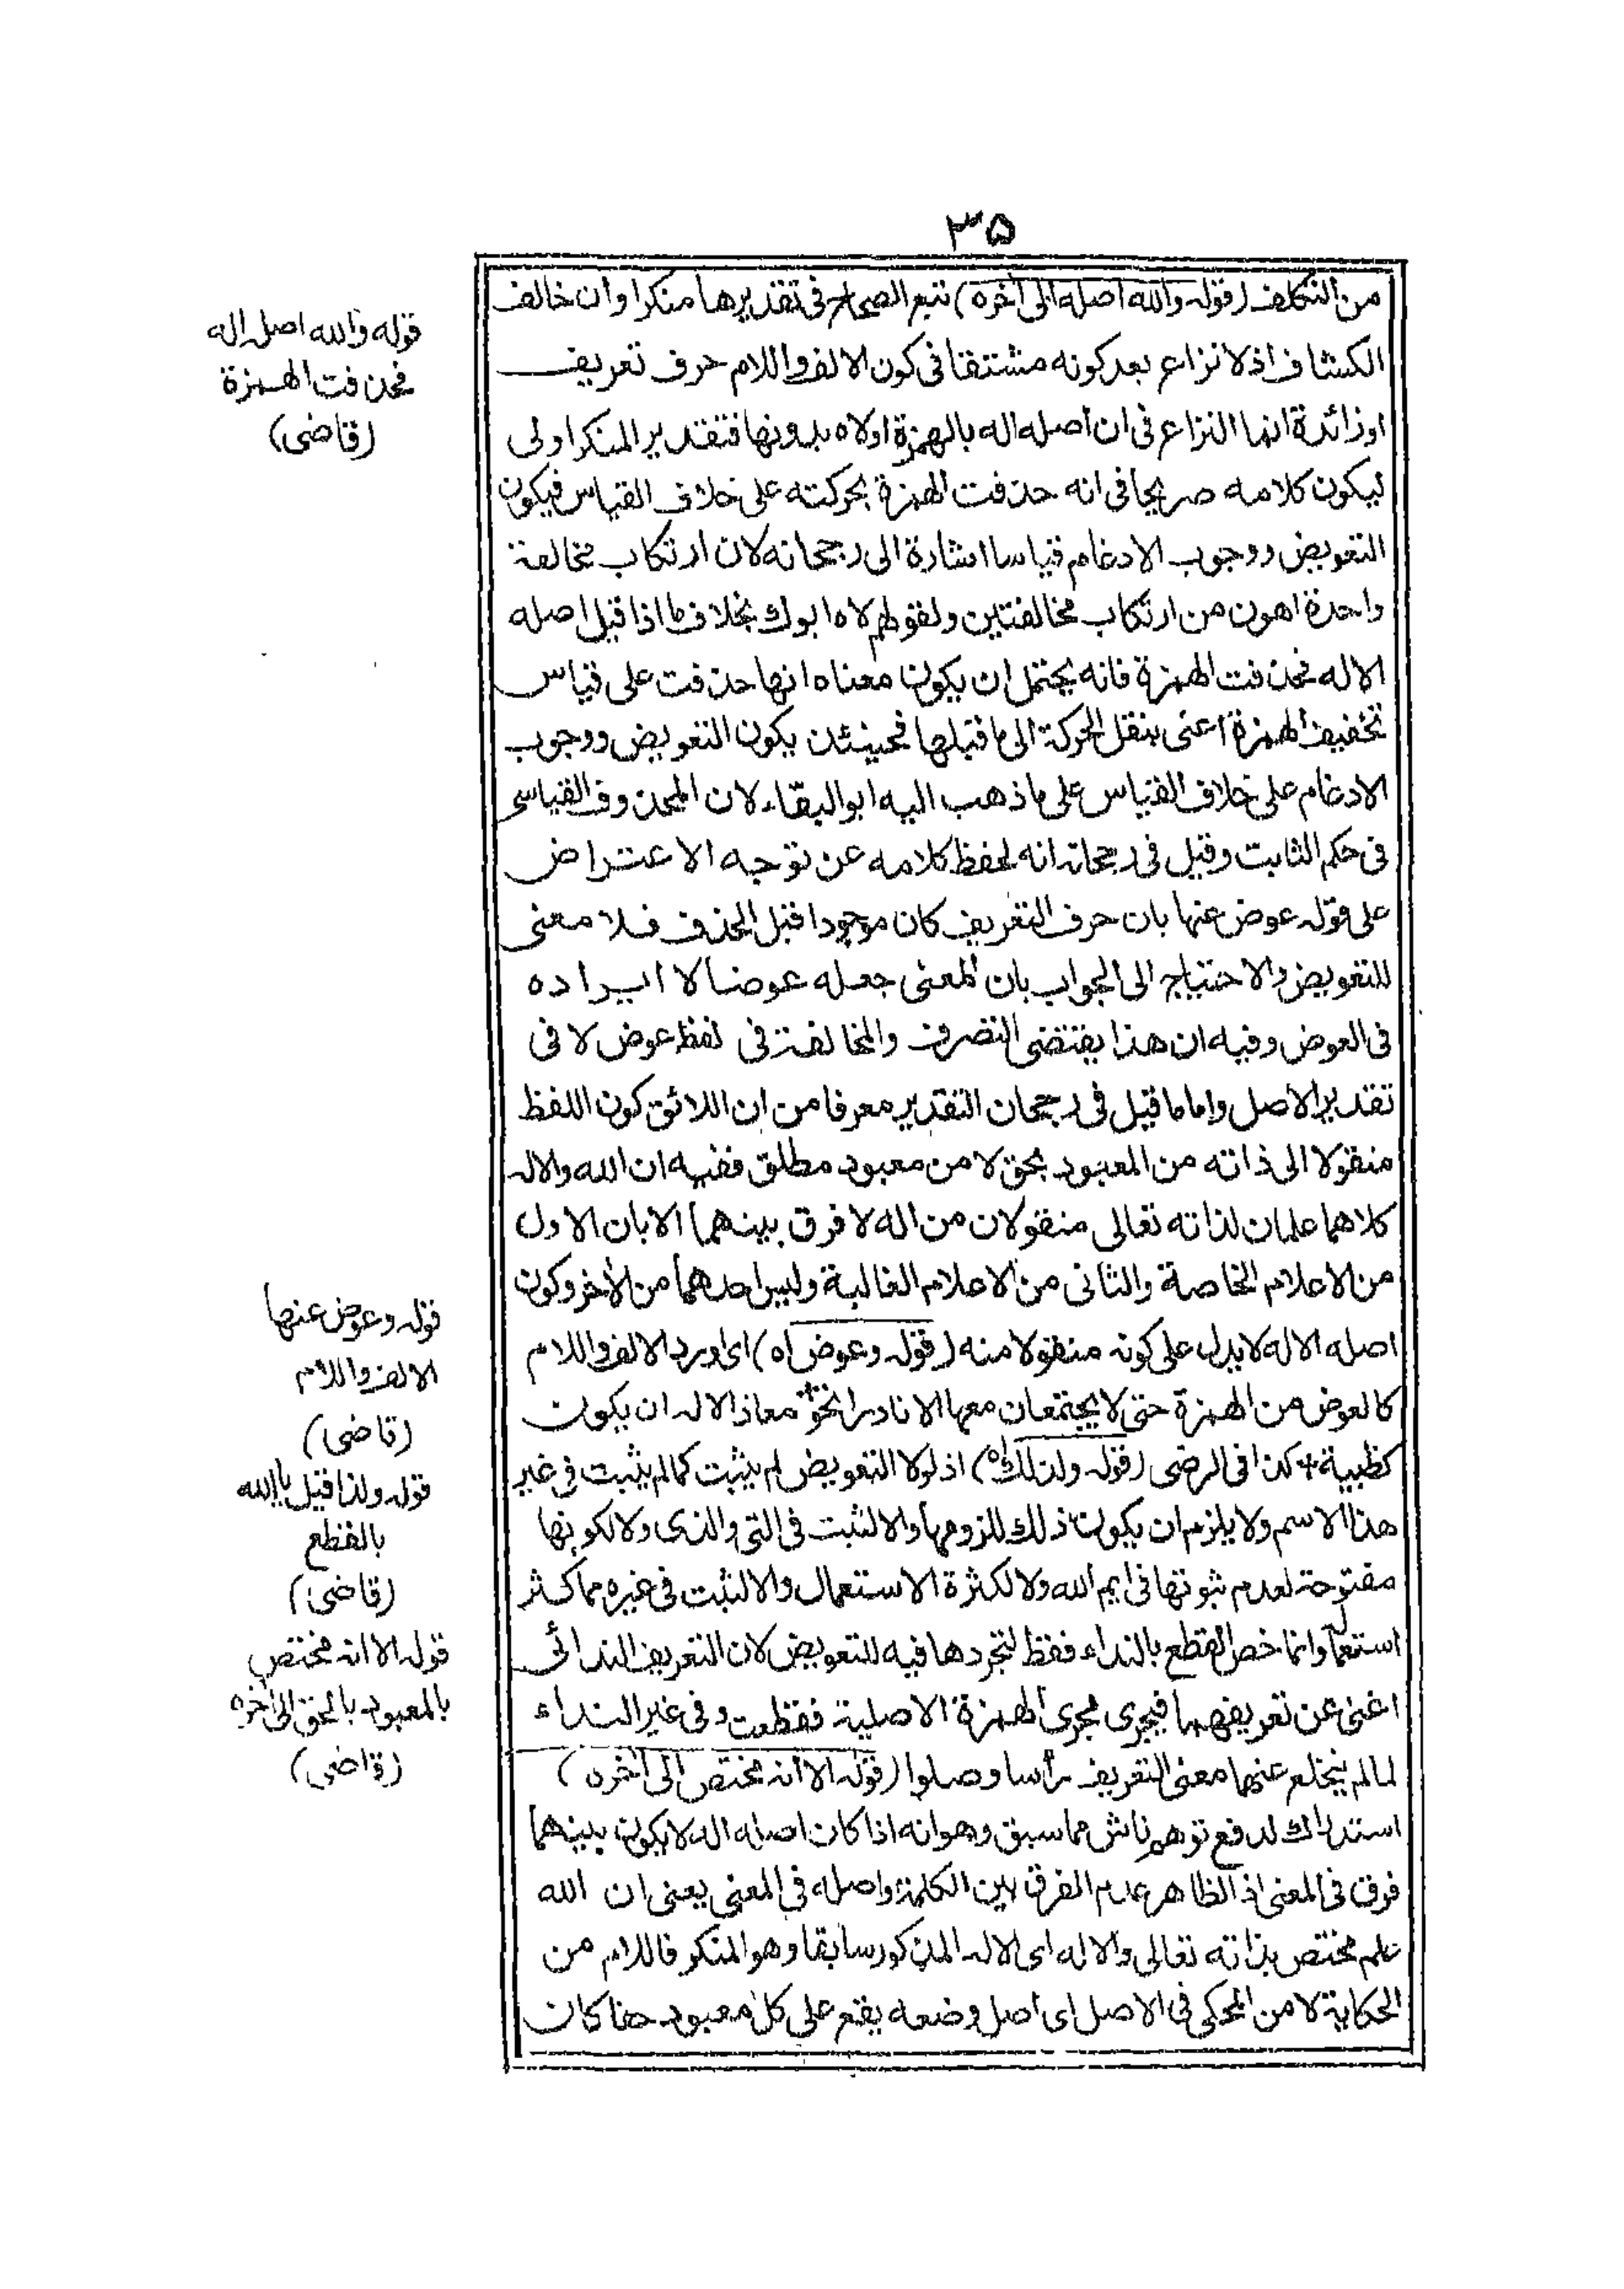 ٣٥
من التكلف (قوله والله اصله الى آخره) تتبع الصحاح فى تقديرها منكرا وان خالف
الكشاف اذ لا نزاع بعد كونه مشتقا فى كون الالف واللام حرف تعريف
او زائدة انما النزاع فى ان اصله اله بالهمزة اولاه بدونها فتقدير المنكر اولى
ليكون كلامه صريحا فى انه حذفت الهمزة بحركته على خلاف القياس فيكون
التعويض ووجوب الادغام قياسا اشارة الى رجحانه لان ارتكاب مخالفة
واحدة اهون من ارتكاب مخالفتين ولقولهم لاه ابوك بخلاف ما اذا قيل اصله
الاله فحذفت الهمزة فانه يحتمل ان يكون معناه انها حذفت على قياس
تخفيف الهمزة اعنى بنقل الحركة الى ما قبلها فحينئذ يكون التعويض ووجوب
الادغام على خلاف القياس على ما ذهب اليه ابو البقاء لان المحذوف القياسى
فى حكم الثابت وقيل فى رجحانه انه لحفظ كلامه عن توجه الاعتراض
على قوله عوض عنها بان حرف التعريف كان موجودا قبل الحذف فلا معنى
للتعويض والاحتياج الى الجواب بان المعنى جعله عوضا لا ايراده
فى العوض وفيه ان هذا يقتضى التصرف والمخالفة فى لفظ عوض لا فى
تقدير الاصل واما ما قيل فى رجحان التقدير معرفا من ان اللائق كون اللفظ
منقولا الى ذاته من المعبود بحق لا من معبود مطلق ففيه ان الله والاله
كلاهما علمان لذاته تعالى منقولان من اله لا فرق بينهما الا بان الاول
من الاعلام الخاصة والثانى من الاعلام الغالبة وليس احدهما من الأخر وكون
اصله الاله لا يدل على كونه منقولا منه (قوله وعوض اه) اى اورد الالف واللام
كالعوض من الهمزة حتى لا يجتمعان معها الا نادرا نحو معاذ الاله ان يكون
كظبية + كذا فى الرضى (قوله ولذلك اه) اذ لولا التعويض لم يثبت كما لم يثبت فى غير
هذا الاسم ولا يلزم ان يكون ذلك للزومها والا لثبت فى التى والذى ولا لكونها
مفتوحة لعدم ثبوتها فى ايم الله ولا لكثرة الاستعمال والا لثبت فى غيره مما كثر
استعمالا وانما خص القطع بالنداء فقط لتجردها فيه للتعويض لان التعريف الندائى
اغنى عن تعريفهما فيجرى مجرى الهمزة الاصلية فقطعت وفى غير النداء
لما لم ينخلع عنهما معنى التعريف رأسا وصلوا (قوله الا انه مختص الى آخره)
استدراك لدفع توهم ناش مما سبق وهو انه اذا كان اصله اله لا يكون بينهما
فرق فى المعنى اذ الظاهر عدم الفرق بين الكلمة واصله فى المعنى يعنى ان الله
علم مختص بذاته تعالى والاله اى الاله المذكور سابقا وهو المنكر فاللام من
الحكاية لا من المحكى فى الاصل اى اصل وضعه يقع على كل معبود حقا كان
قوله والله اصل اله
فحذفت الهمزة
(قاضى)
قوله وعوض عنها
الالف واللام
(قاضى)
قوله ولذا قيل يا الله
بالقطع
(قاضى)
قوله الا انه مختص
بالمعبود بالحق الى آخره
(قاضى)